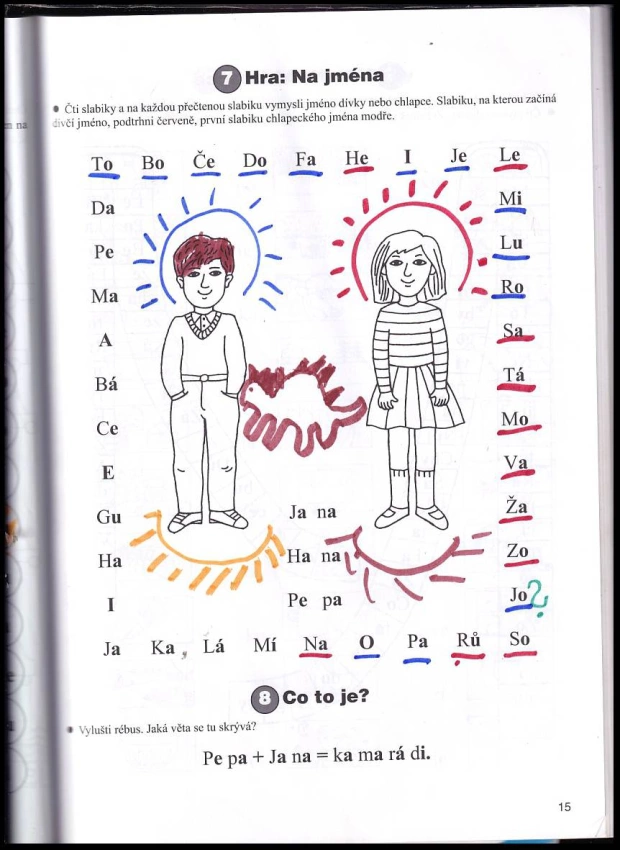 7 Hra: Na jména
• Čti slabiky a na každou přečtenou slabiku vymysli jméno dívky nebo chlapce. Slabiku, na kterou začíná
dívčí jméno, podtrhni červeně, první slabiku chlapeckého jména modře.
To Bo Če Do Fa He I Je Le
Da Mi
Pe Lu
Ma Ro
A Sa
Bá Tá
Ce Mo
E Va
Gu Ja na Ža
Ha Ha na Zo
I Pe pa Jo ?
Ja Ka , Lá Mí Na O Pa Rů So
8 Co to je?
• Vylušti rébus. Jaká věta se tu skrývá?
Pe pa + Ja na = ka ma rá di.
15